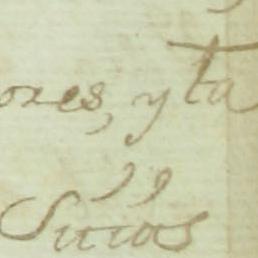 ores, y ta
Sucios